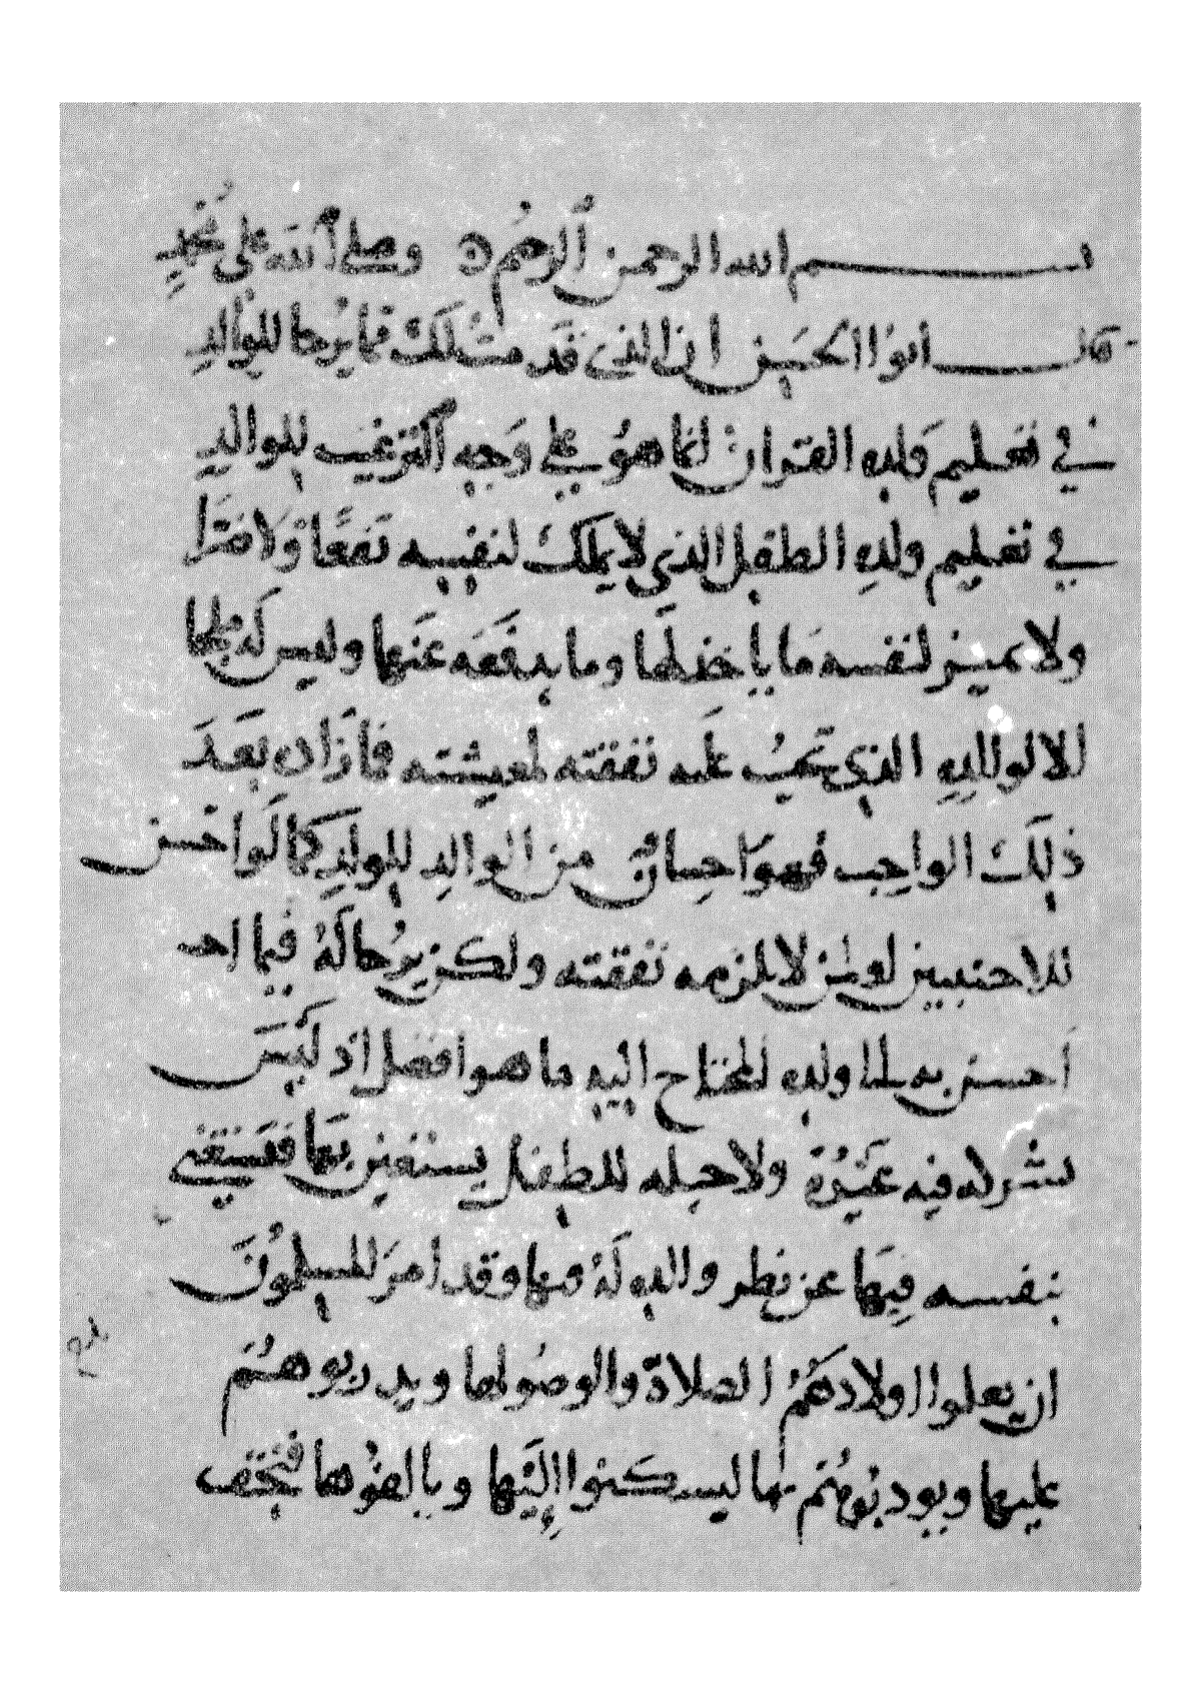 بسم الله الرحمن الرحيم وصلى الله على محمد
قال ابوا الحسن ان الذي قد مثلك فما يرجا للوالد
في تعليم ولده القران انما هو على وجه الترغيب للوالد
في تعليم ولده الطفل الذي لا يملك لنفسه نفعا ولا ضرا
ولا يميز لنفسه ما ياخذ لها وما يدفعه عنها وليس له ملجا
الا لوالده الذي تجب عليه نفقته لمعيشته فما زاد بعد
ذلك الواجب فهو احسان من الوالد للولد كما لو احسن
للاجنبيين او لمن لا يلزمه نفقته ولكن يرجا له فيما احـ
احسن به الى ولده المحتاج اليه ما هو افضل اذ ليس
يشركه فيه غيره ولا حيله للطفل يستغني بها فيستغني
بنفسه فيها عن نظر والده له فيها وقد امر المسلمون
ان يعلموا اولادهم الصلاة والوضو لها ويدربوهم
عليها ويودبوهم بها ليسكنوا اليها ويالفوها فتخف